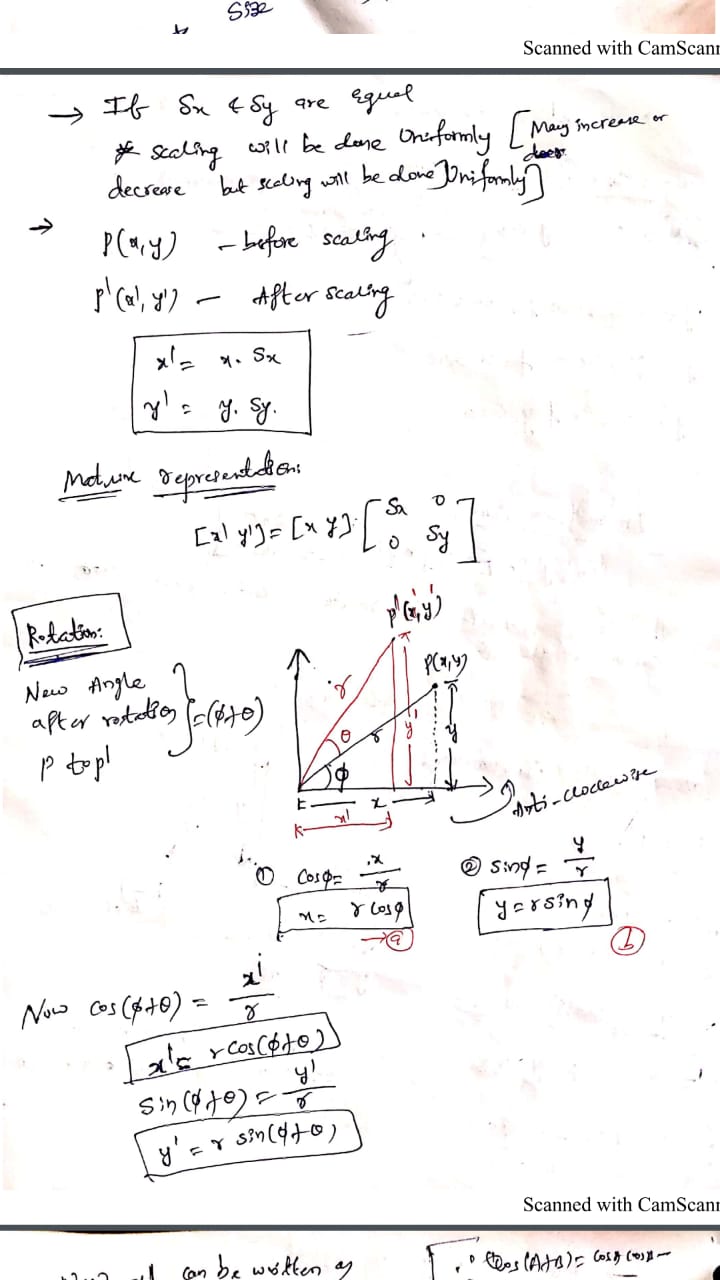 Size
Scanned with CamScann
→ If Sx & Sy are equal
* scaling will be done Uniformly [May increase or
decrease but scaling will be done Uniformly]
→ P(x,y) - before scaling.
P'(x', y') - After scaling
x' = x. Sx
y' = y. Sy.
Matrix representation:
[x' y'] = [x y]. [Sx 0
0 Sy]
Rotation:
New Angle
after rotation } = (φ+θ)
P to P'
P'(x',y')
P(x,y)
r
θ
r
y'
y
φ
x
x'
Anti-clockwise
① Cosφ = x/r ② Sinφ = y/r
x = r cosφ y = r sinφ
→ⓐ ⓑ
Now cos(φ+θ) = x'/r
x' = r cos(φ+θ)
Sin(φ+θ) = y'/r
y' = r sin(φ+θ)
Scanned with CamScann
can be written as [∵ Cos(A+B) = CosA CosB -